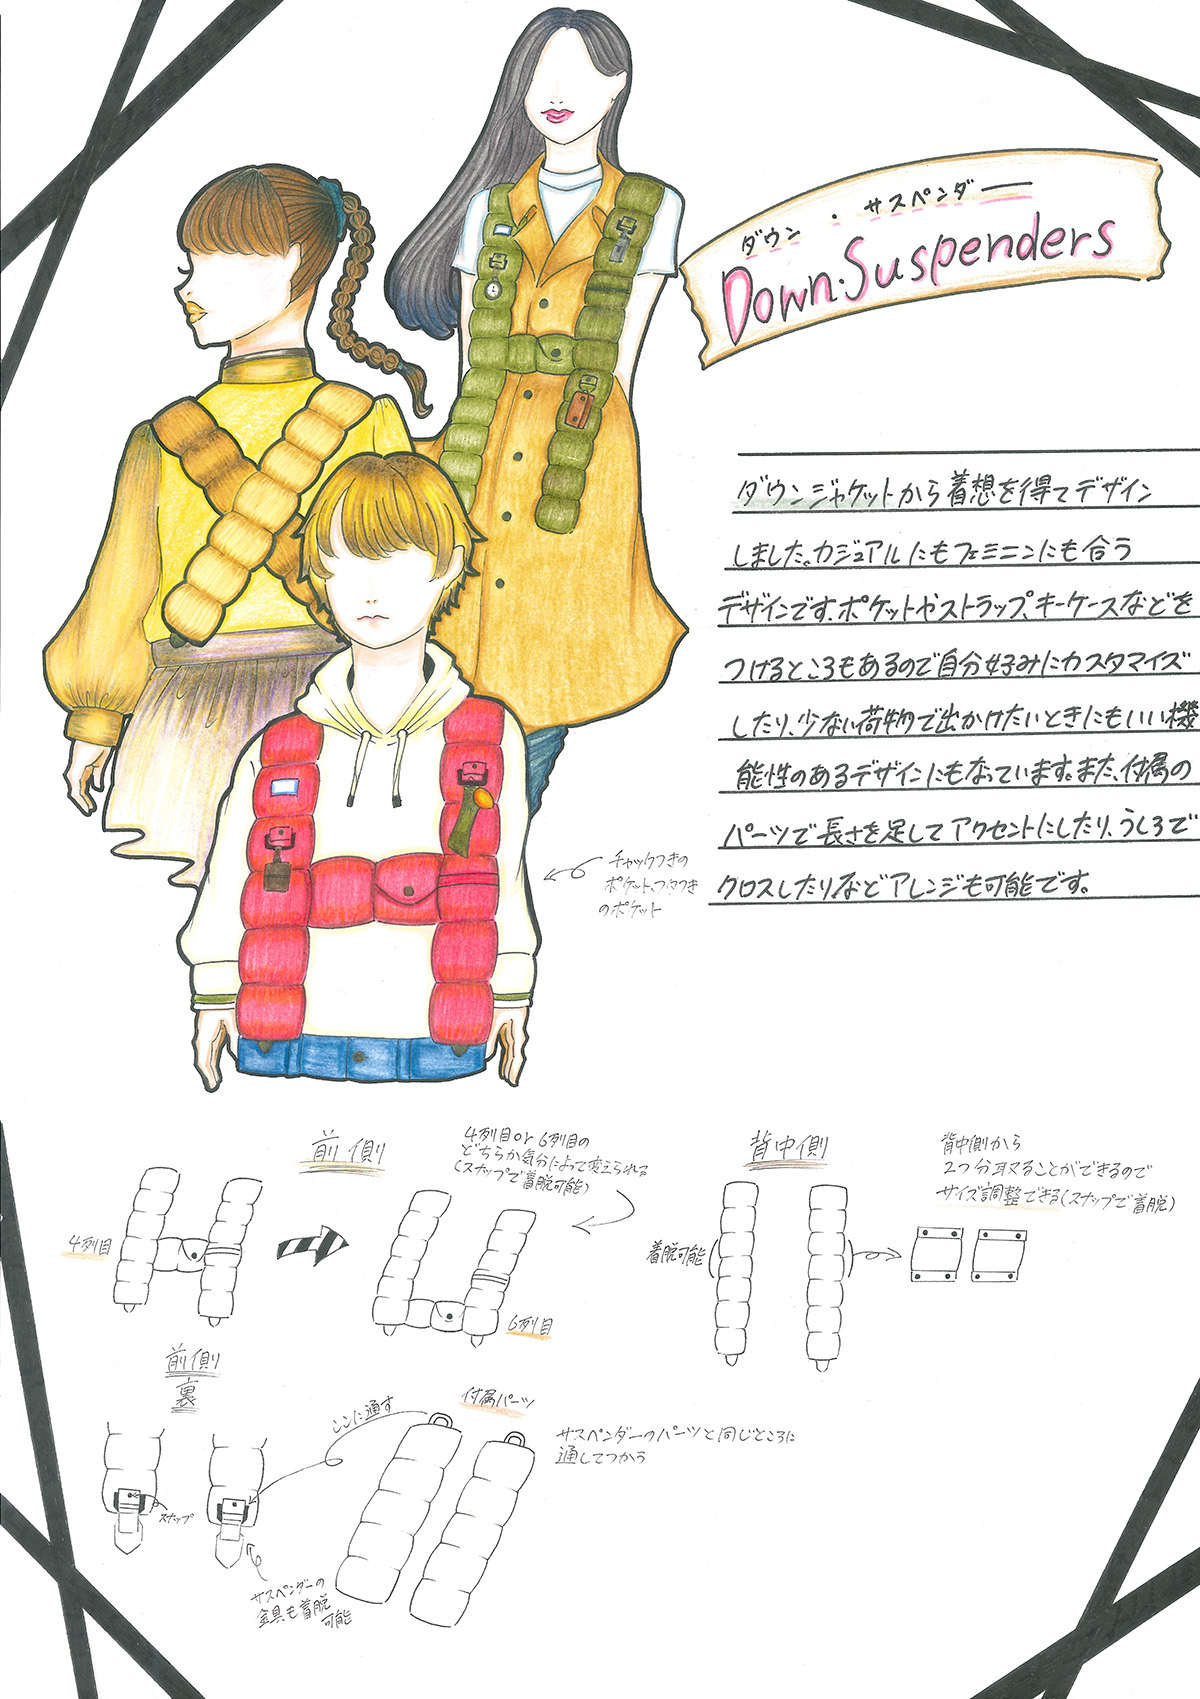 ダウン・サスペンダー
Down・Suspenders
ダウンジャケットから着想を得てデザイン
しました。カジュアルにもフェミニンにも合う
デザインです。ポケットやストラップ、キーケースなどを
つけるところもあるので自分好みにカスタマイズ
したり、少ない荷物で出かけたいときにもいい機
能性のあるデザインにもなっています。また、付属の
パーツで長さを足してアクセントにしたり、うしろで
クロスしたりなどアレンジも可能です。
チャックつきの
ポケット、フタつき
のポケット
前側
4列目or 6列目の
どちらか気分によって変えられる
(スナップで着脱可能)
4列目
6列目
背中側
着脱可能
背中側から
2つ分取ることができるので
サイズ調整できる(スナップで着脱)
前側
裏
スナップ
サスペンダーの
金具も着脱
可能
ここに通す
付属パーツ
サスペンダーのパーツと同じところに
通してつかう